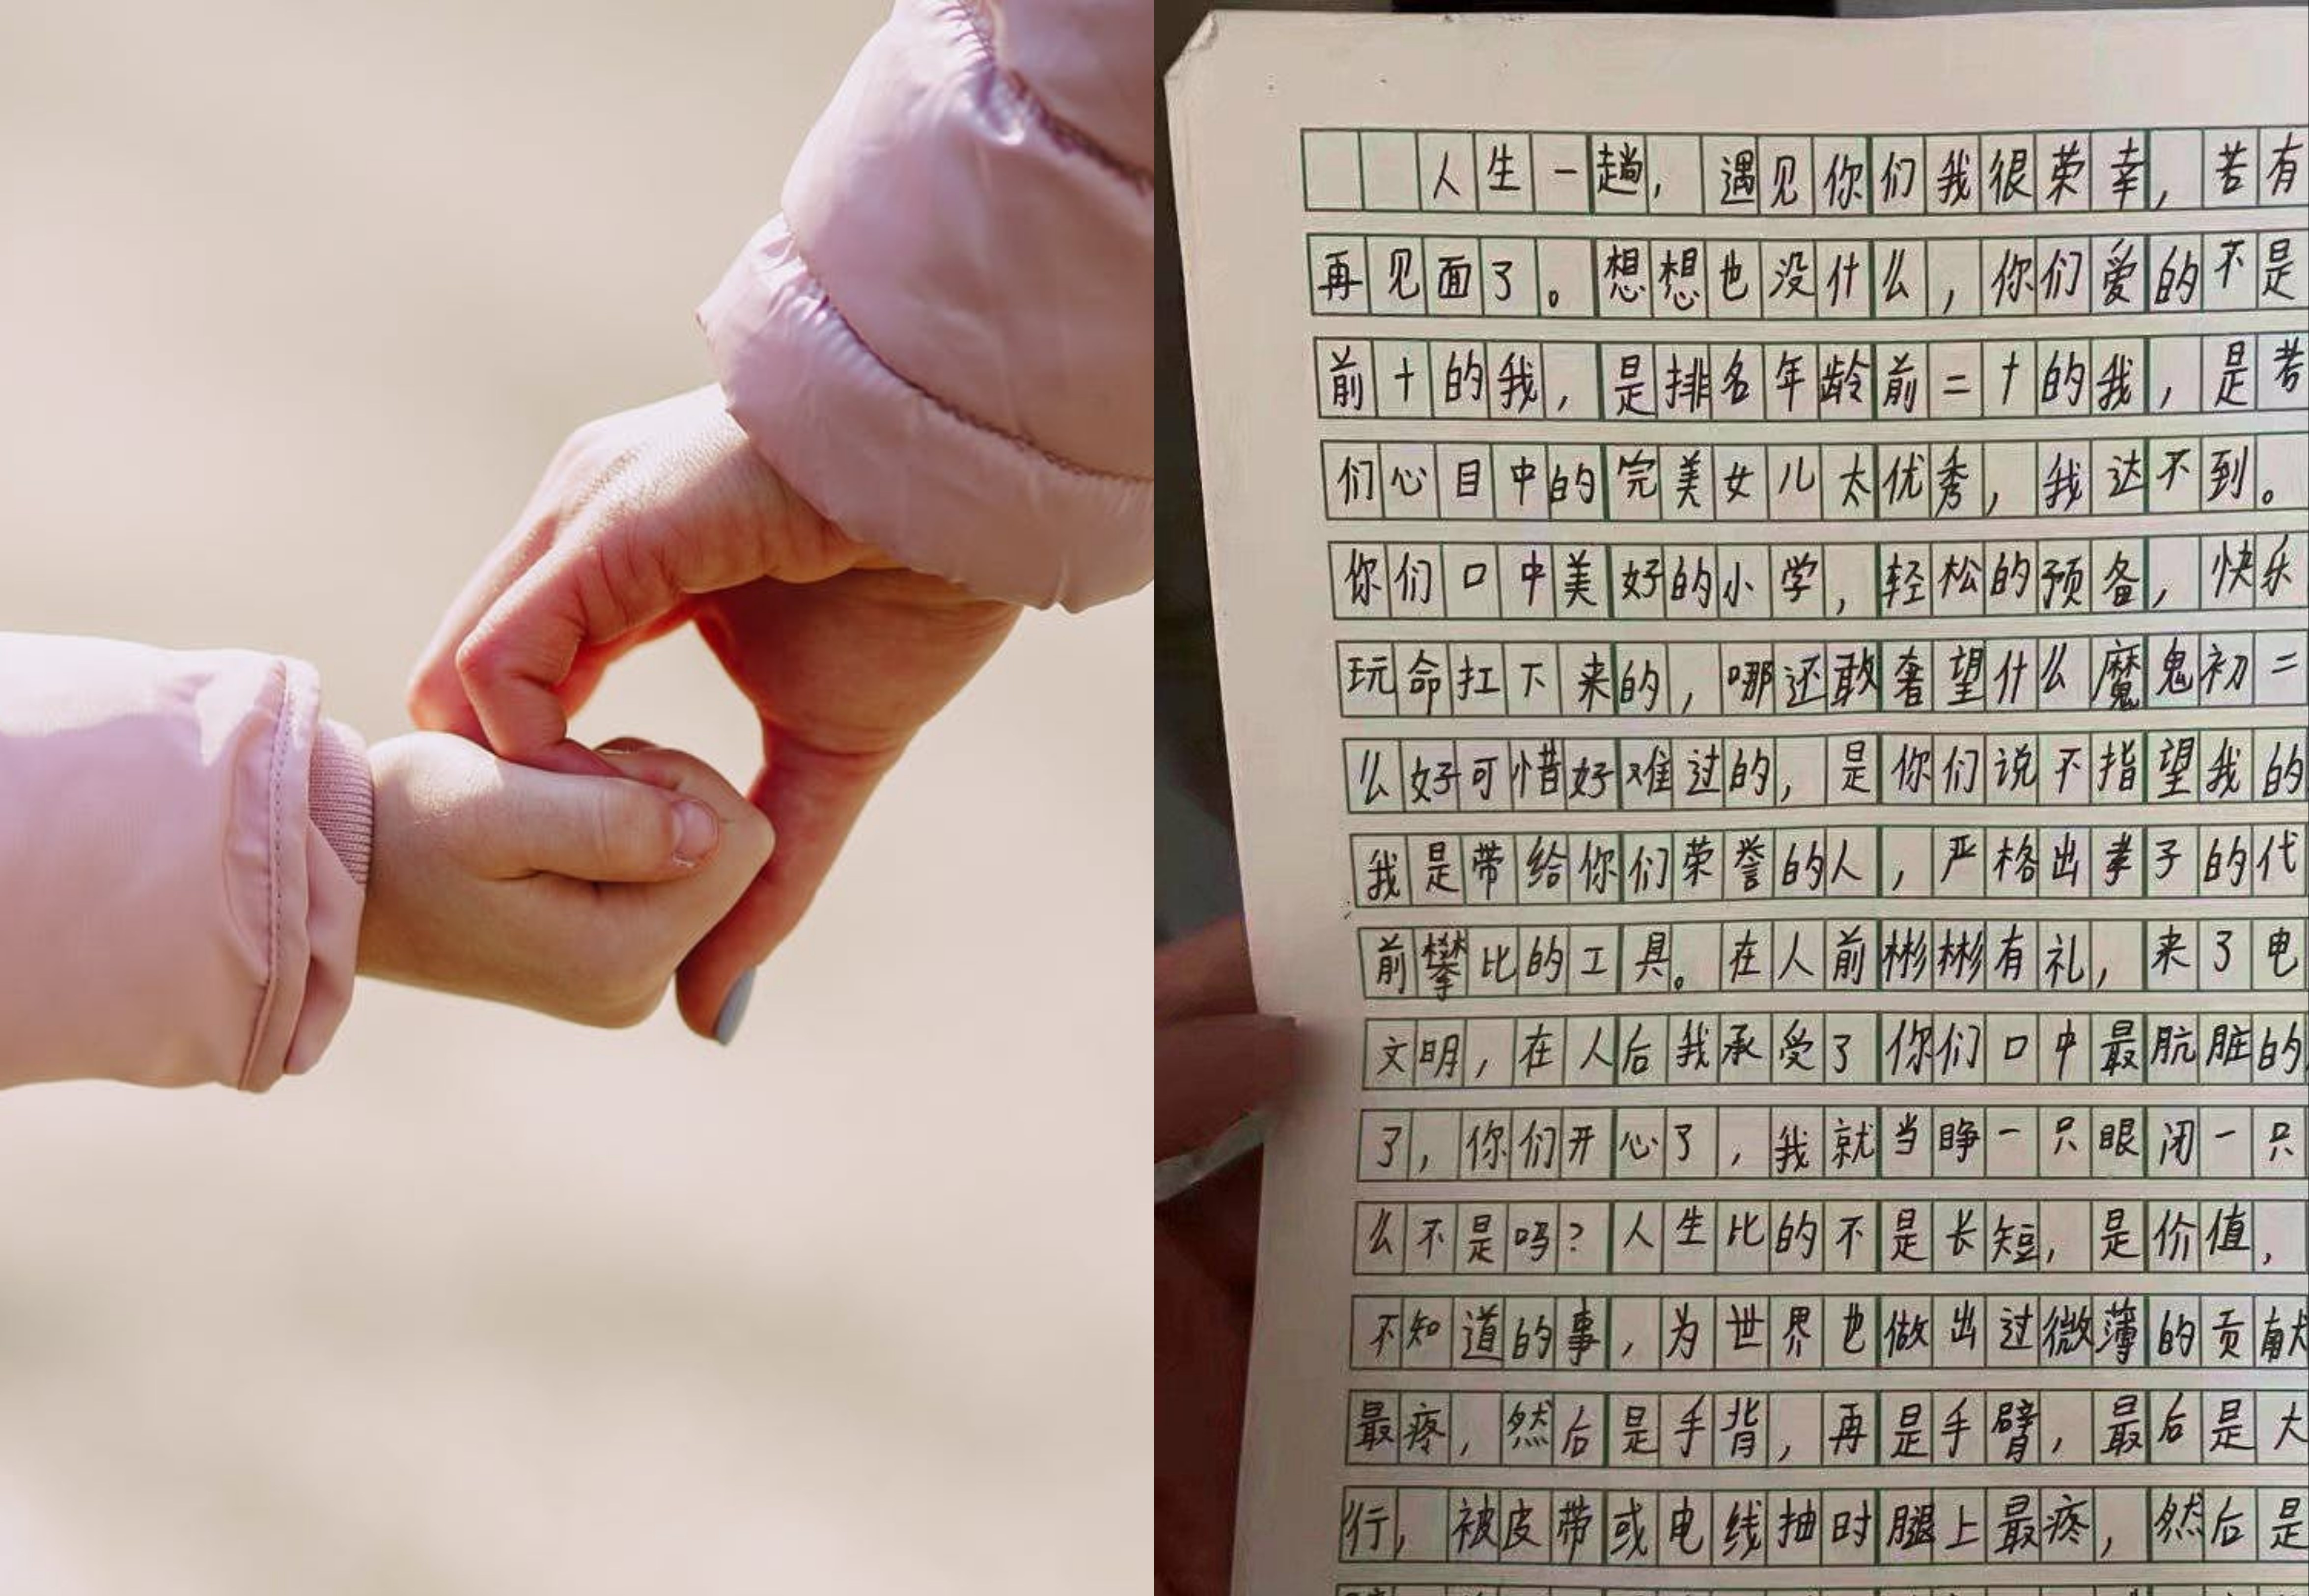 人生一趟，遇见你们我很荣幸，若有
再见面了。想想也没什么，你们爱的不是
前十的我，是排名年龄前二十的我，是考
们心目中的完美女儿太优秀，我达不到。
你们口中美好的小学，轻松的预备，快乐
玩命扛下来的，哪还敢奢望什么魔鬼初二
么好可惜好难过的，是你们说不指望我的
我是带给你们荣誉的人，严格出孝子的代
前攀比的工具。在人前彬彬有礼，来了电
文明，在人后我承受了你们口中最肮脏的
了，你们开心了，我就当睁一只眼闭一只
么不是吗？人生比的不是长短，是价值，
不知道的事，为世界也做出过微薄的贡献
最疼，然后是手背，再是手臂，最后是大
行，被皮带或电线抽时腿上最疼，然后是